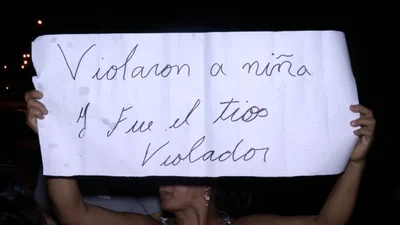 Violaron a niña
y Fue el tioo
Violador